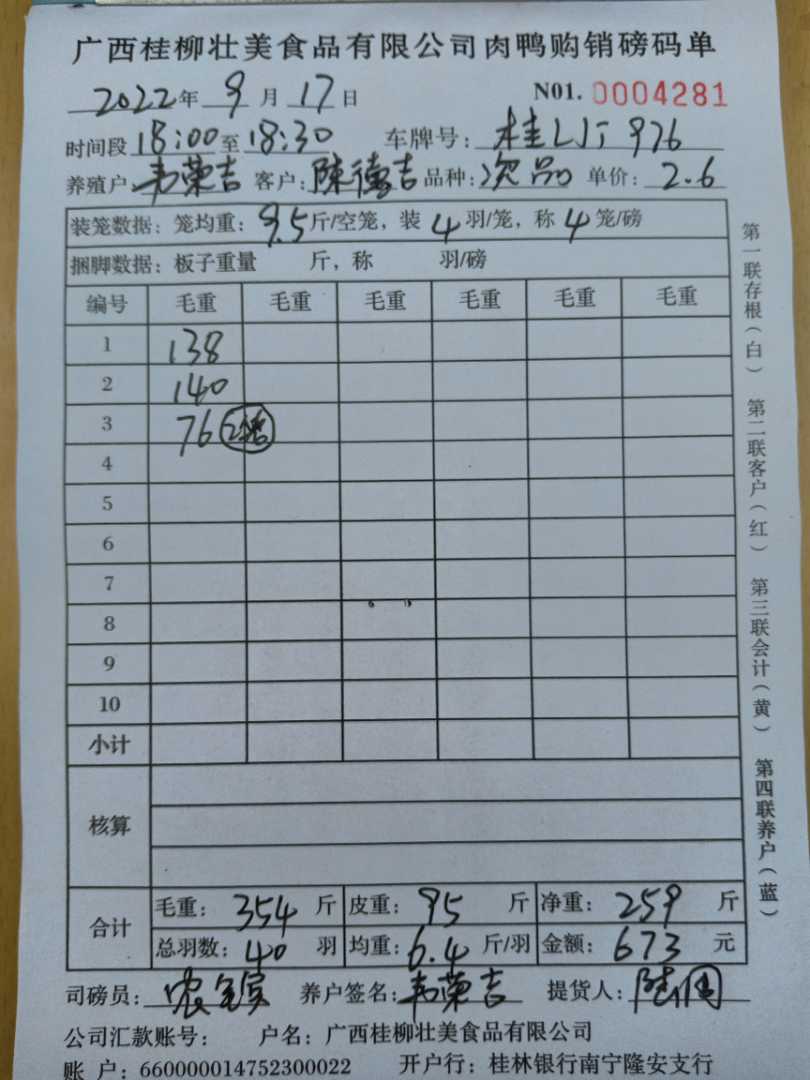 广西桂柳壮美食品有限公司肉鸭购销磅码单
2022年 9 月 17 日 N01. 0004281
时间段 18:00 至 18:30 车牌号: 桂LJT976
养殖户 韦荣吉 客户: 陈德吉 品种: 次品 单价: 2.6
装笼数据: 笼均重: 9.5 斤/空笼, 装 4 羽/笼, 称 4 笼/磅
捆脚数据: 板子重量 斤, 称 羽/磅
编号 毛重 毛重 毛重 毛重 毛重 毛重
1 138
2 140
3 76
4
5
6
7
8
9
10
小计
核算
合计
毛重: 354 斤 皮重: 95 斤 净重: 259 斤
总羽数: 40 羽 均重: 6.4 斤/羽 金额: 673 元
司磅员: 养户签名: 韦荣吉 提货人:
公司汇款账号: 户名: 广西桂柳壮美食品有限公司
账 户: 660000014752300022 开户行: 桂林银行南宁隆安支行
第一联存根(白) 第二联客户(红) 第三联会计(黄) 第四联养户(蓝)